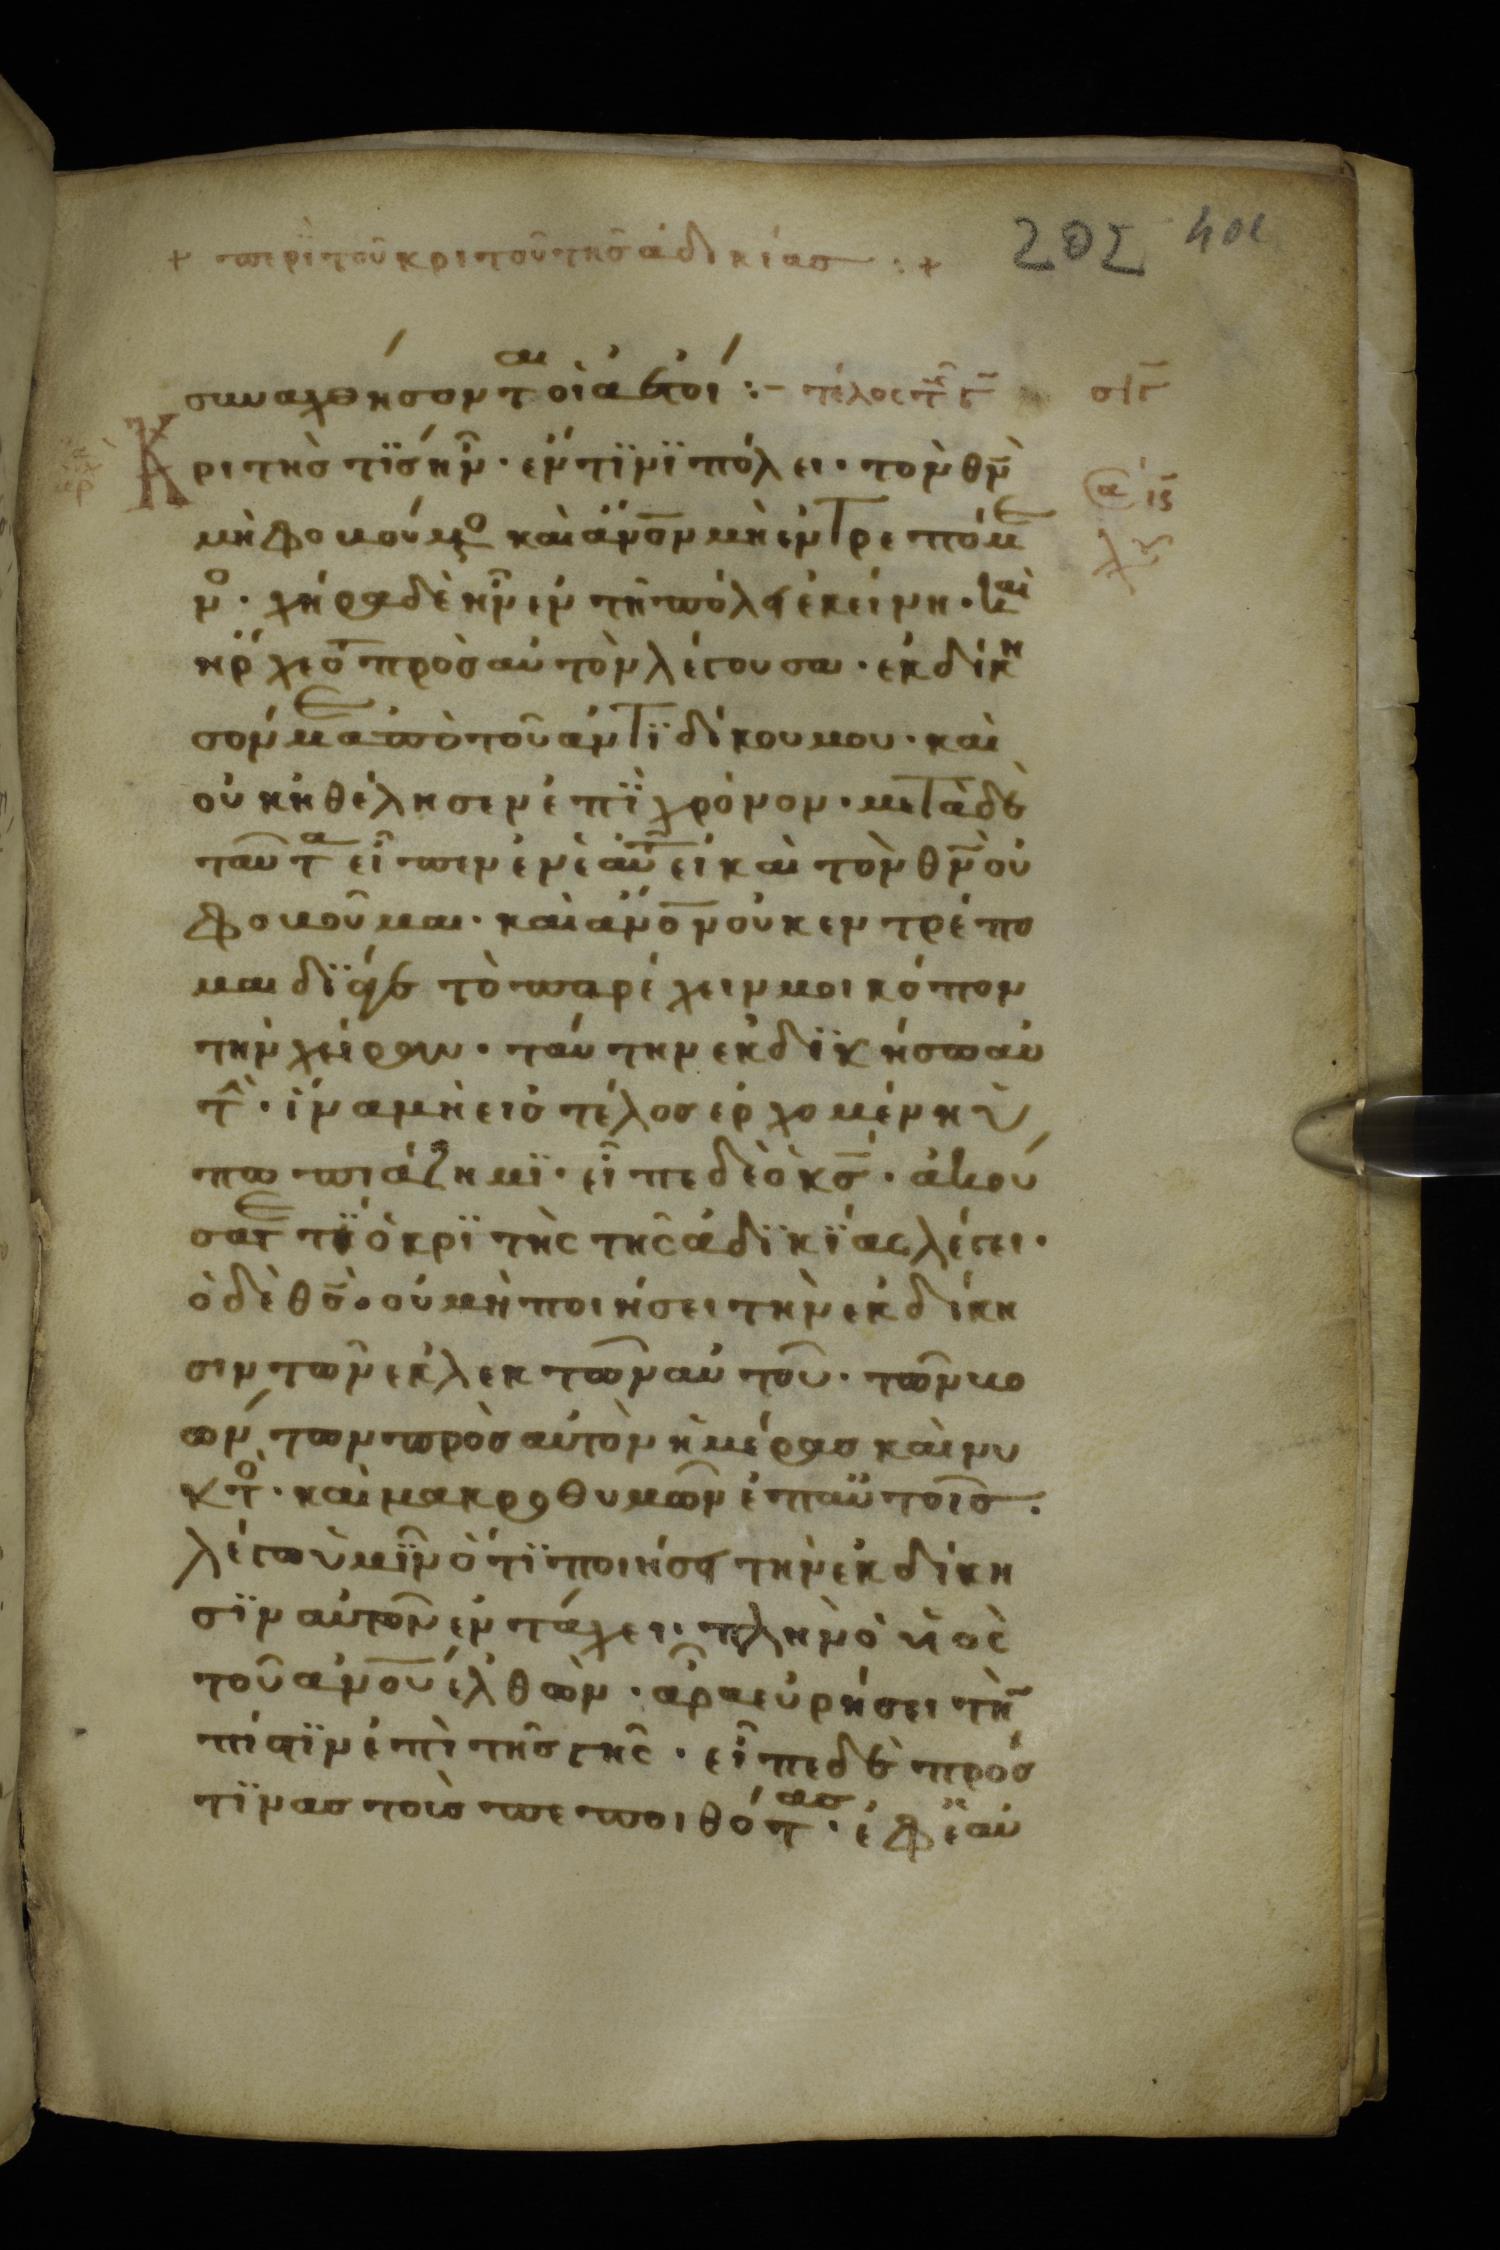 + περὶ τοῦ κριτοῦ τῆς ἀδικίας :+
συναχθήσονται οἱ ἀετοί :– τέλος τῆς
Κριτής τϊς ἦν · ἔν τϊνϊ πόλει · τὸν θν̅
μὴ φοβούμενος καὶ ἄνο̅ν μὴ ἐντρεπόμε
νο · χήρα δὲ ἦν ἐν τῆ πόλει ἐκείνη · καὶ
ἤρχετο πρὸς αὐτὸν λέγουσα · ἐκδίκη
σόν με ἀπὸ τοῦ ἀντϊδίκου μου · καὶ
οὐκ ἠθέλησεν ἐπῒ χρόνον · μετὰ δὲ
ταῦτα εἶπεν ἐν ἑαυτῶ εἰ καὶ τὸν θν̅ οὐ
φοβοῦμαι · καὶ ἄνο̅ν οὐκ ἐντρέπο
μαι δϊά γε τὸ παρέχειν μοι κόπον
τὴν χείραν · ταύτην ἐκδϊκήσω αὐ
τὴν · ἵνα μὴ εἰς τέλος ἐρχομένη ὑ
πωπιάζη μϊ · εἶπε δὲ ὁ κς̅ · ἀκού
σατε τϊ ὁ κρϊτὴς τῆς ἀδϊκϊας λέγει ·
ὁ δὲ θς̅ · οὐ μὴ ποιήσει τὴν ἐκδίκη
σιν τῶν ἐκλεκτῶν αὐτοῦ · τῶν βο
ών των πρὸς αὐτὸν ἡμέρας καὶ νυ
κτὸ · καὶ μακροθυμῶν ἐπ αὐτοῖς ·
λέγω ὑμῖν ὅτϊ ποιήσει τὴν ἐκδίκη
σϊν αὐτῶν ἐν τάχει · πλὴν ὁ ὑϊὸς
τοῦ ἀνο̅υ ἐλθὼν · ἆρα εὑρήσει τὴν
πίστϊν ἐπὶ τῆς γῆς · εἶπε δὲ πρός
τϊνας τοὺς πεποιθότας · ἐφ ἑαυ